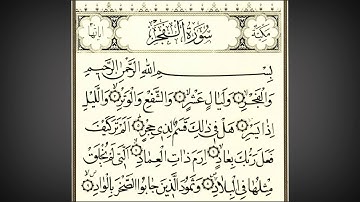 مكية سورة الفجر آياتها
بِسْمِ اللهِ الرَّحْمٰنِ الرَّحِيمِ
وَالْفَجْرِ وَلَيَالٍ عَشْرٍ وَالشَّفْعِ وَالْوَتْرِ وَاللَّيْلِ
إِذَا يَسْرِ هَلْ فِي ذٰلِكَ قَسَمٌ لِذِي حِجْرٍ أَلَمْ تَرَ كَيْفَ
فَعَلَ رَبُّكَ بِعَادٍ إِرَمَ ذَاتِ الْعِمَادِ الَّتِي لَمْ يُخْلَقْ
مِثْلُهَا فِي الْبِلَادِ وَثَمُودَ الَّذِينَ جَابُوا الصَّخْرَ بِالْوَادِ